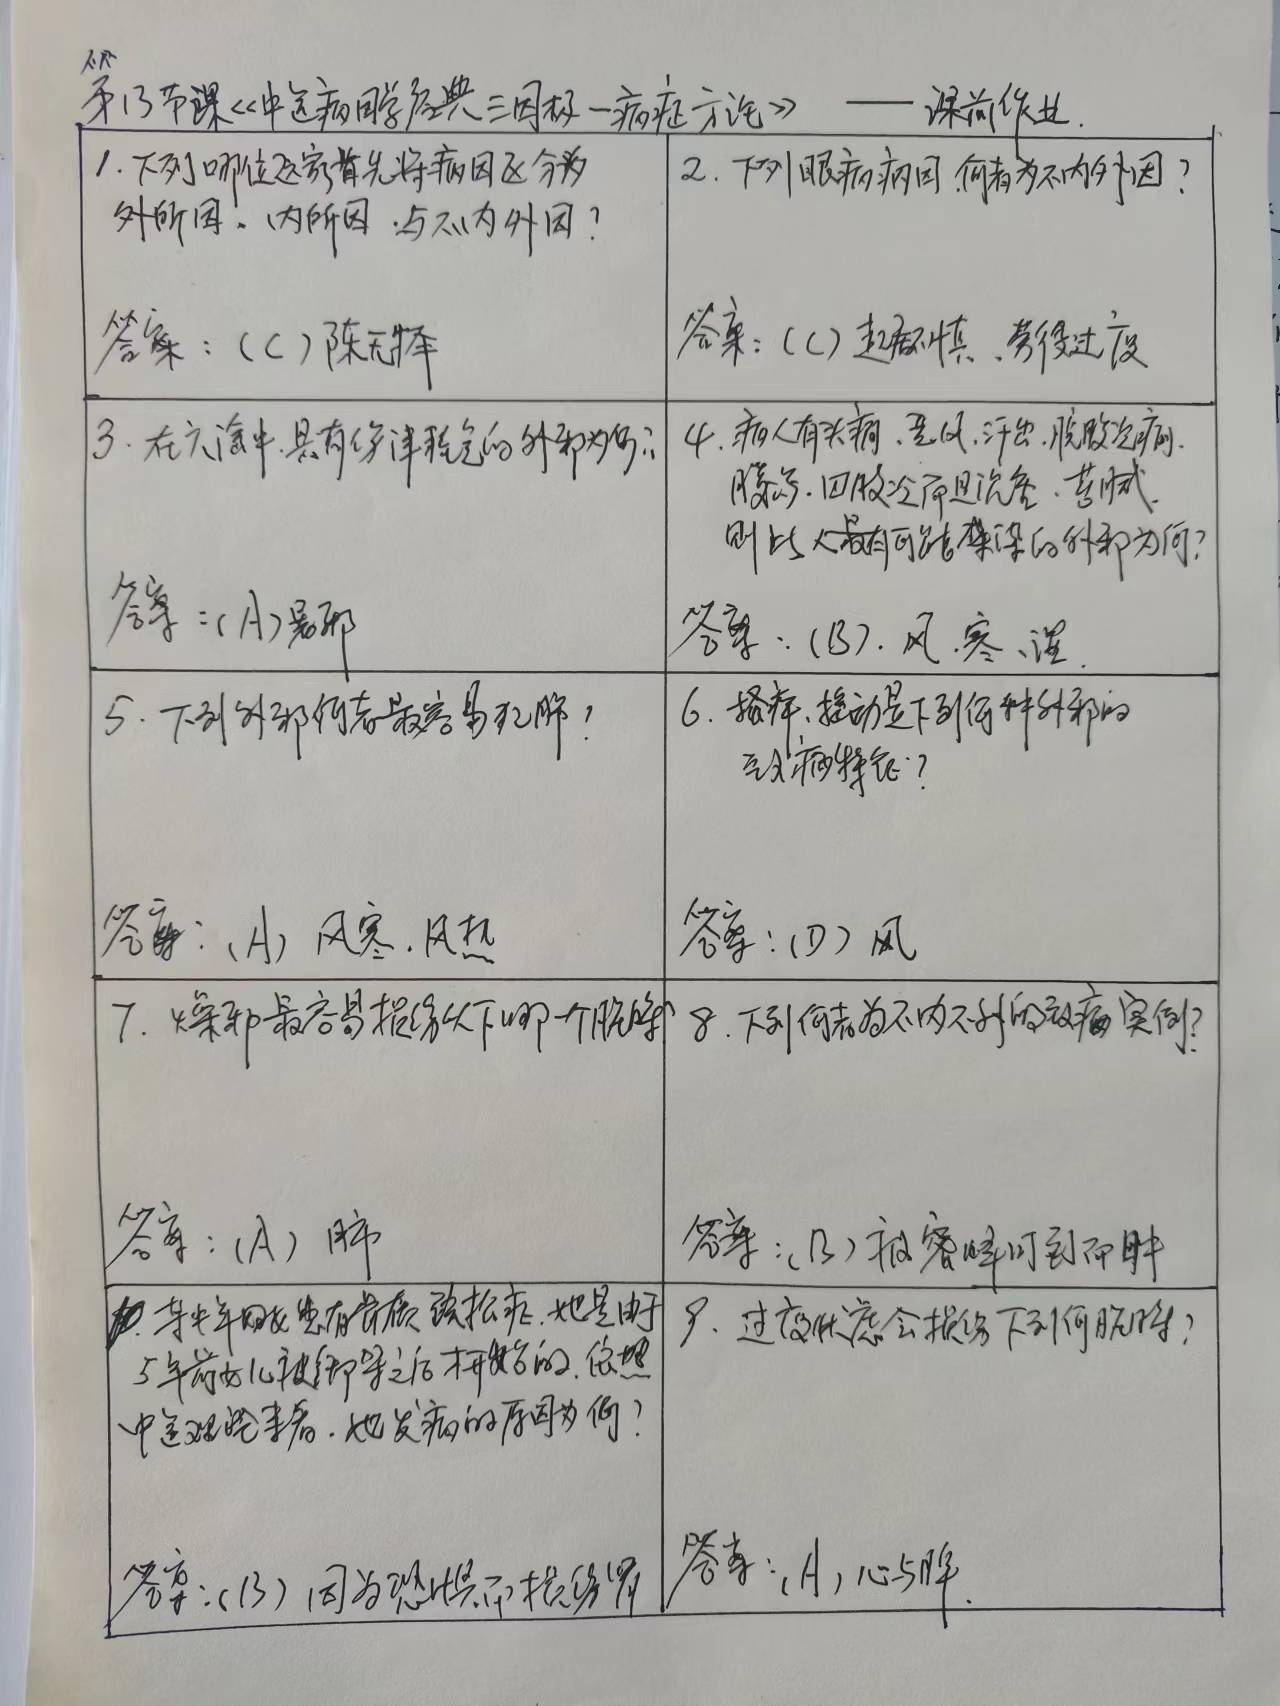 第13节课《中医病因学经典三因极一病症方论》 —— 课前作业.
1. 下列哪位医家首先将病因区分为
外所因、内所因、与不内外因?
答案:(C)陈无择
2. 下列眼病病因,何者为不内外因?
答案:(C)起居不慎、劳役过度
3. 在六淫中,具有伤津耗气的外邪为何?
答案:(A)暑邪
4. 病人有头痛、恶风、汗出、脘腹冷痛、
四肢冷而且沉重、
则此人最有可能感染的外邪为何?
答案:(B). 风、寒、湿.
5. 下列外邪何者最容易犯肺?
答案:(A) 风寒、风热
6. 搔痒、摇动是下列何种外邪的
致病特征?
答案:(D)风
7. 燥邪最容易损伤以下哪一个脏腑?
答案:(A) 肺
8. 下列何者为不内不外的致病实例?
答案:(B)被蜜蜂叮到而肿
某中年妇女患有骨质疏松症,她是由于
5年前女儿被绑架之后才开始的,依照
中医理论来看,她发病的原因为何?
答案:(B)因为恐惧而损伤肾
9. 过度忧虑会损伤下列何脏腑?
答案:(A)心与脾.